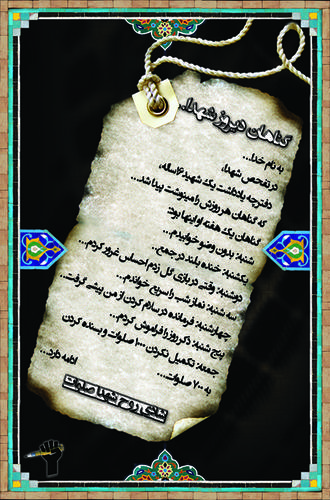 گناهان دیروز شهدا.
به نام خدا...
در تفحص شهدا،
دفترچه یادداشت یک شهید ۱۶ساله،
که گناهان هر روزش را مینوشت پیدا شد...
گناهان یک هفته او اینها بود:
شنبه: بدون وضو خوابیدم...
یکشنبه: خنده بلند در جمع...
دوشنبه: وقتی در بازی گل زدم احساس غرور کردم...
سه شنبه: نماز شب را سریع خواندم...
چهارشنبه: فرمانده در سلام کردن از من پیشی گرفت...
پنج شنبه: ذکر روز را فراموش کردم...
جمعه: تکمیل نکردن ۱۰۰۰ صلوات و بسنده کردن
به ۷۰۰ صلوات...
ادامه دارد...
شادی روح شهدا صلوات